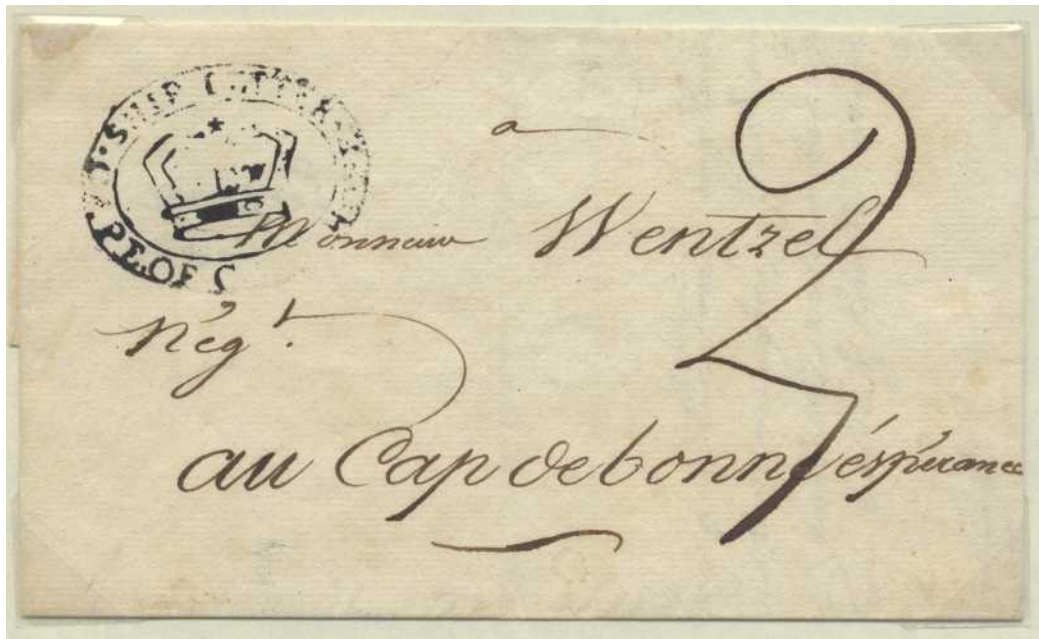 SHIP LETTER
P.E.OF S
a
2
Monsieur Wentzel
Négt.
au Cap de bonne éspérance